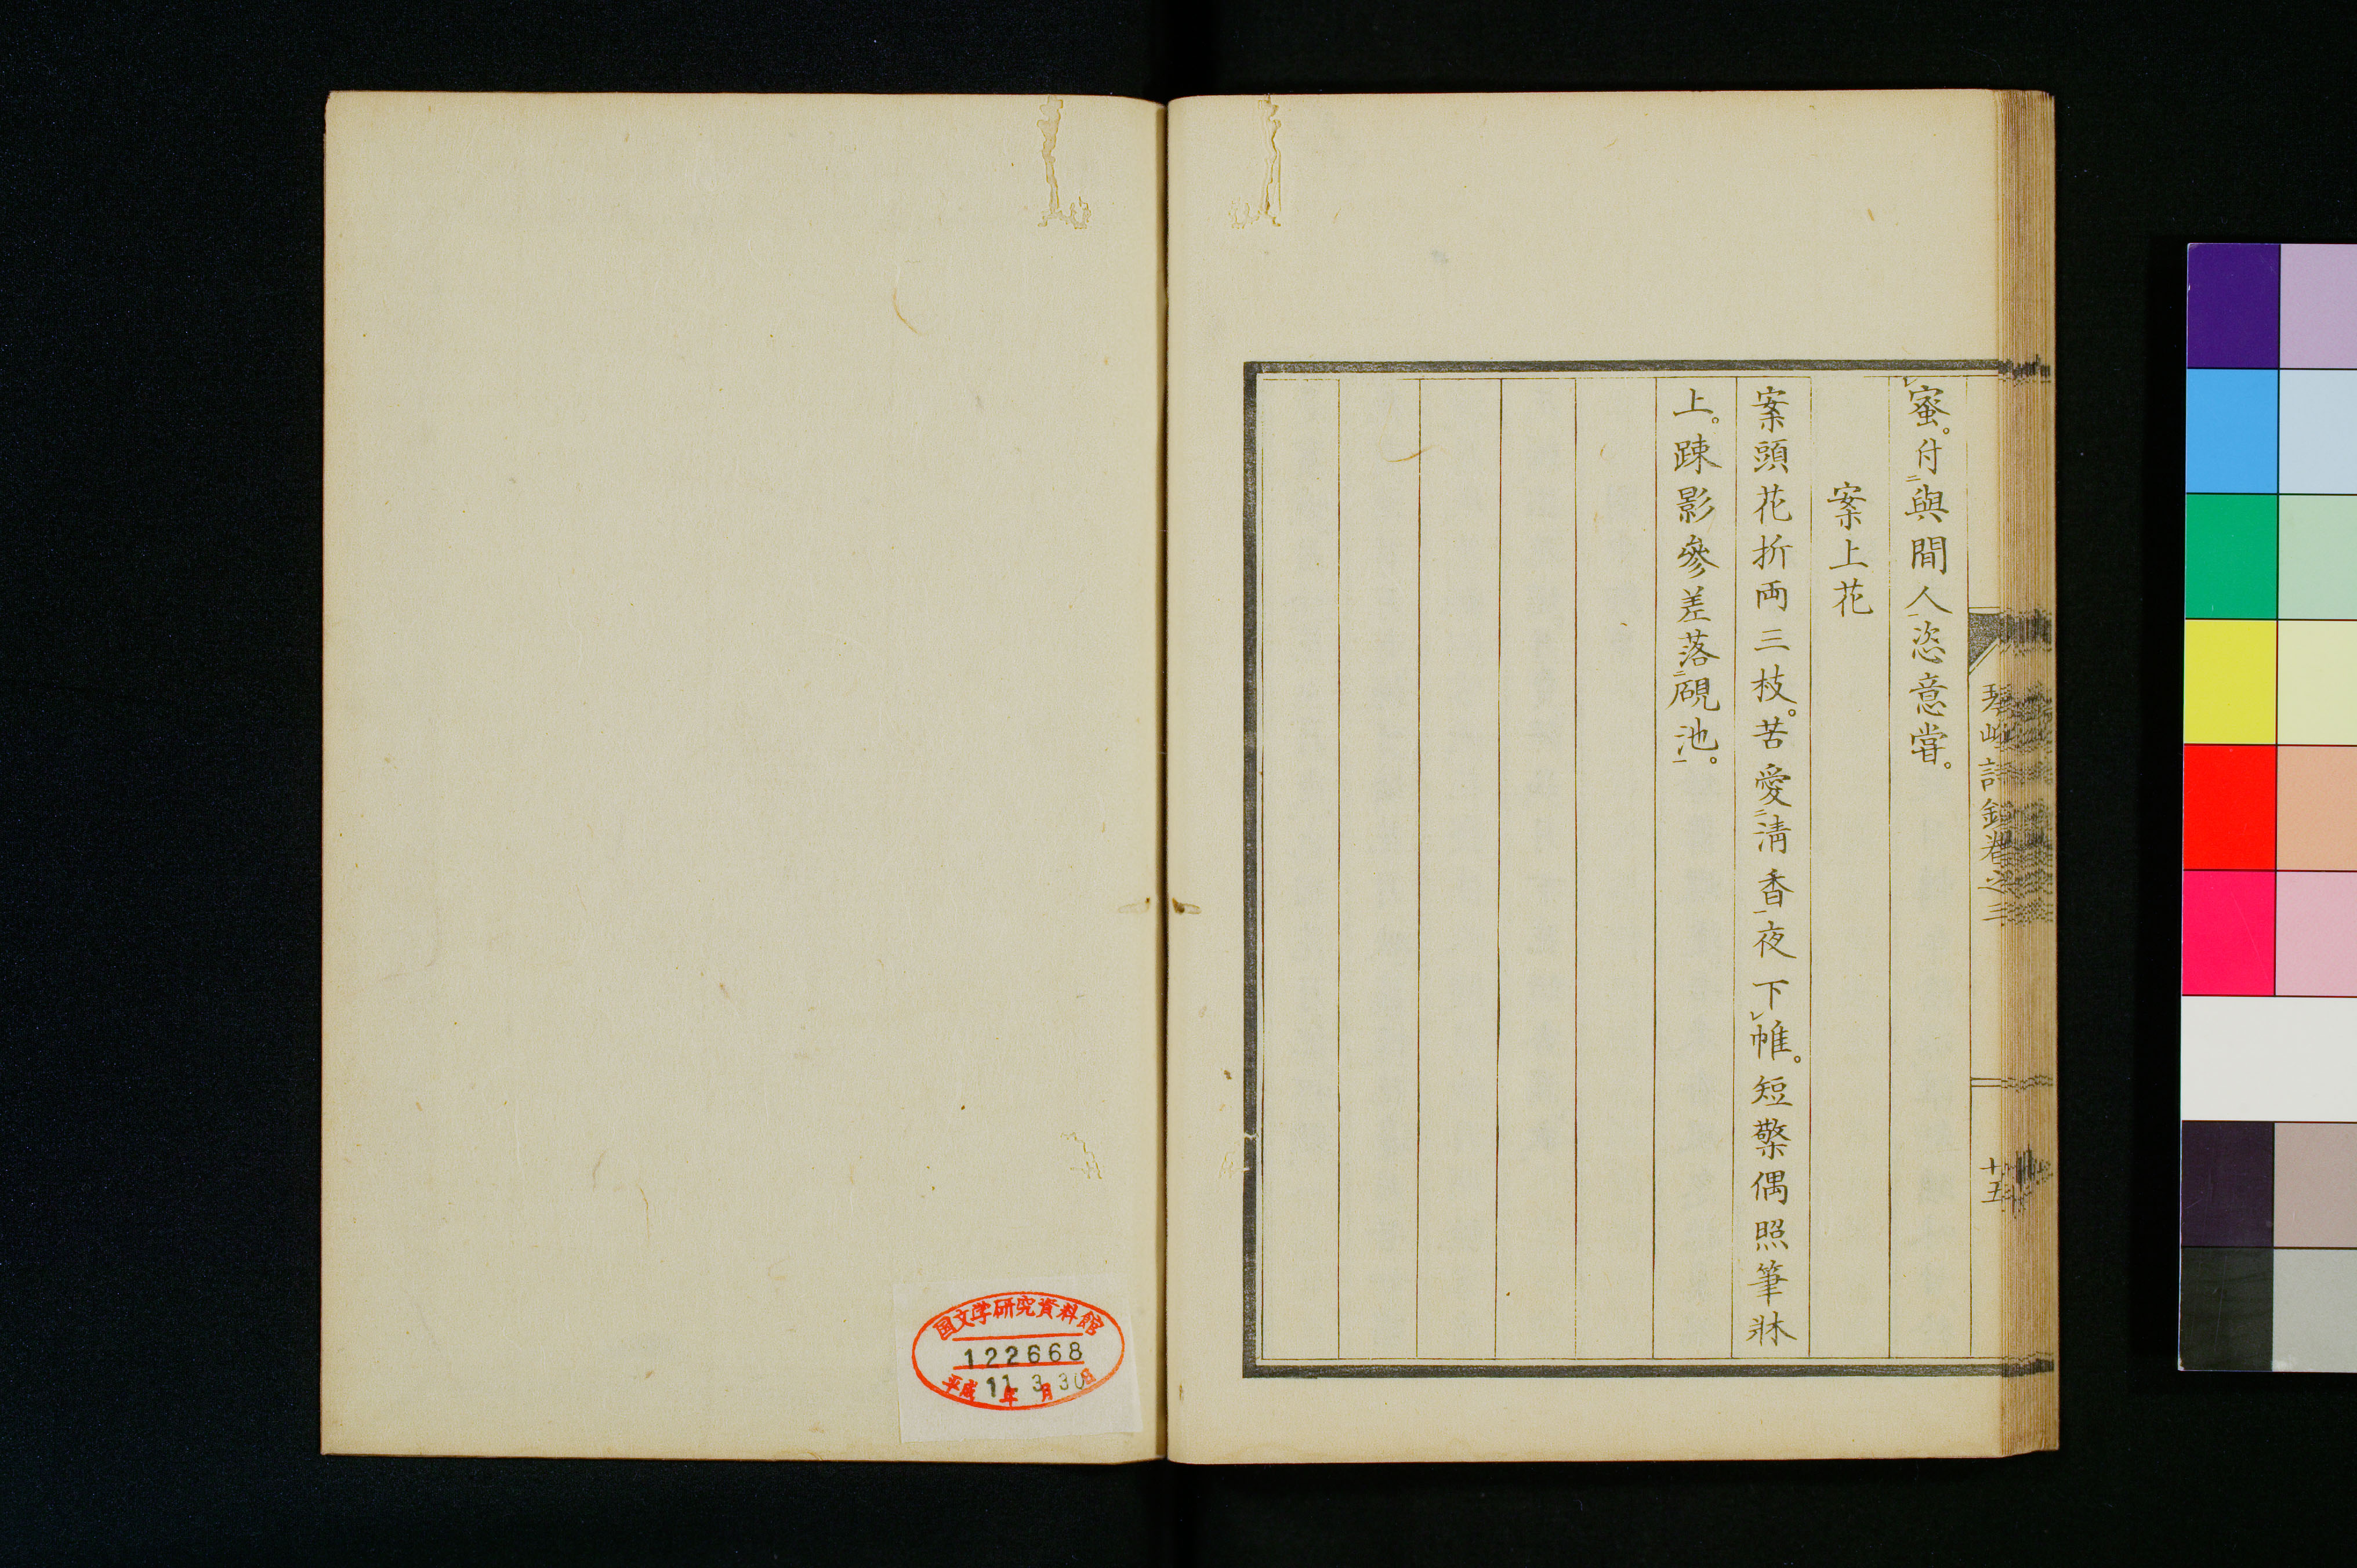 蜜。付与間人恣意嘗。
案上花
案頭花折両三枝。苦愛清香夜下帷。短檠偶照筆牀
上。踈影參差落硯池。
詩鈔卷之三
十五
国文学研究資料館
122668
平成11年3月30日